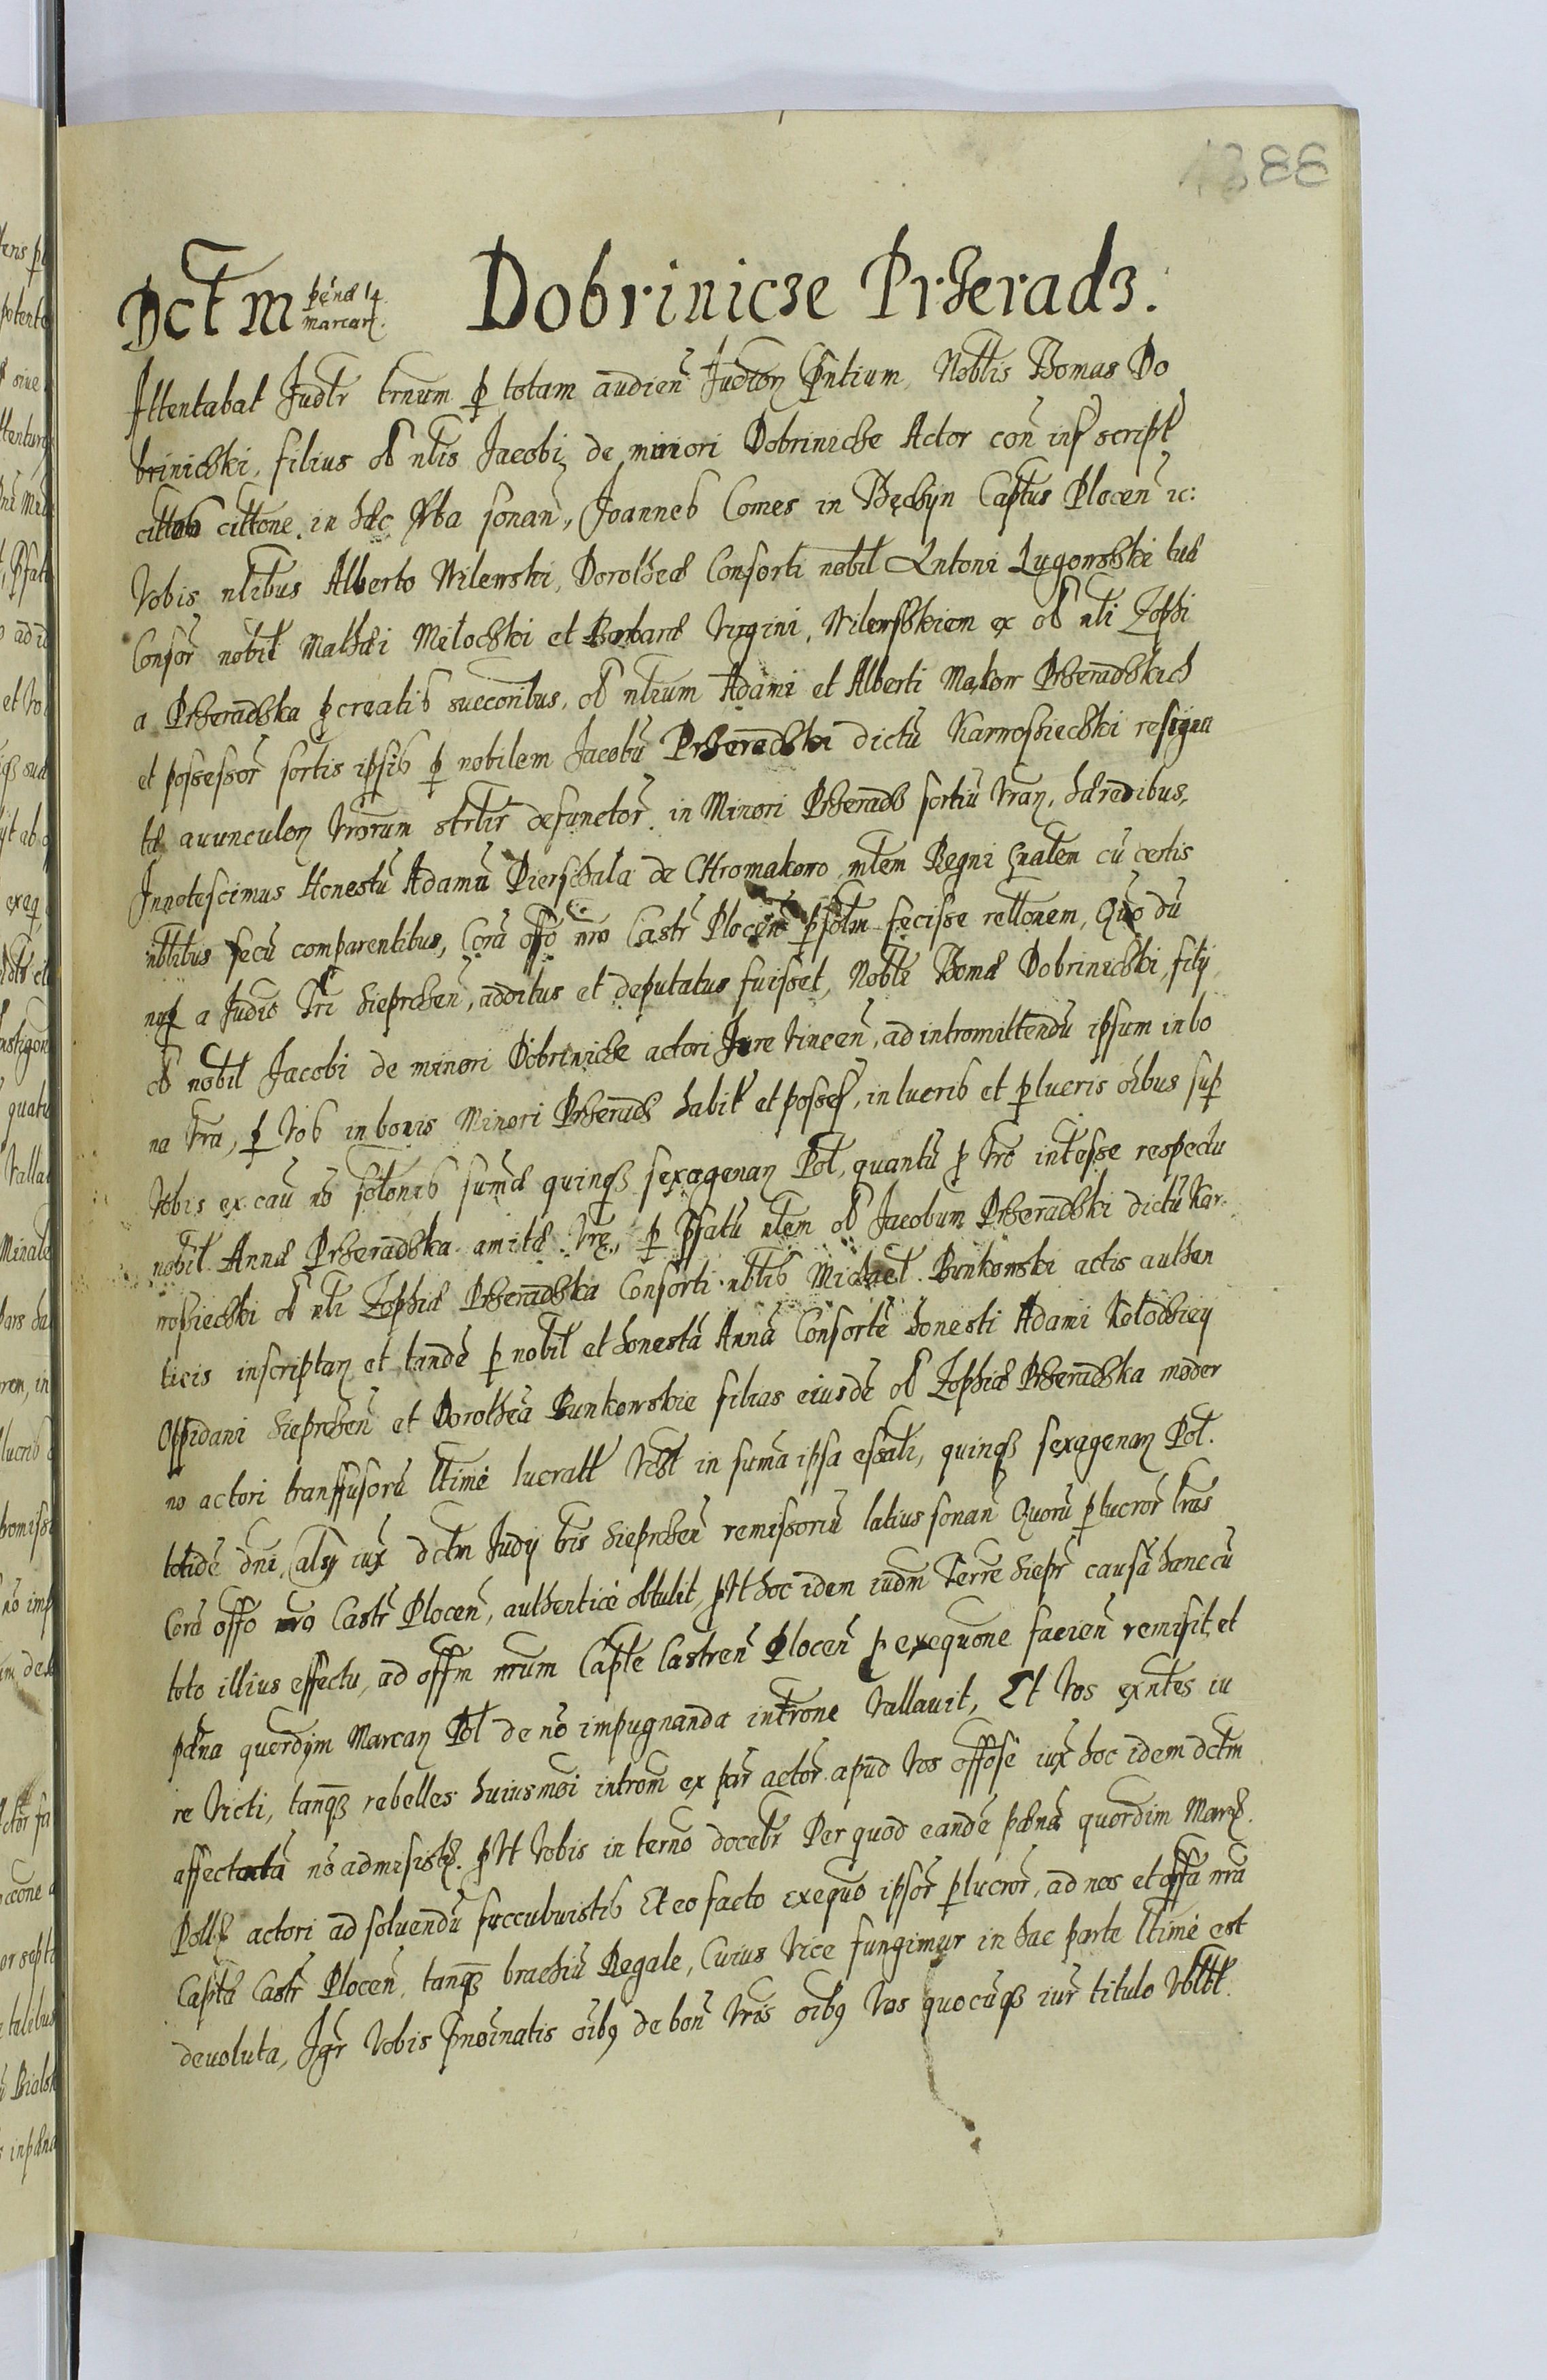 1388
Dct̃M pęnæ 14 marcarꝫ. Dobrinicze Przeradz.
Attentabat Judtr trnum ꝑ totam audień Judiorꝫ pñtium, Nobtis Thomas Do
brinicski, filius ol̃ ntis Jacobi, de minori Dobrinicze Actor coñ inf script̃
cittos cittone in hæc vba sonań, Joannes Comes in Tęczyn Captus Ploceñ ic:
Vobis ntibus Alberto Milewski, Dorotheæ Consorti nobil Antoni Lugowski tuæ
Consor̃ nobil Mathæi Milocski et Barbaræ Virgini, Milewskiem ex ol̃ nti Zophi
a Przeradzka ꝓcreatis succoribus, ol̃ ntium Adami et Alberti Makow Przeradzkich
et possessor̃ sortis ipsis ꝑ nobilem Jacobũ Przeradzki dictũ Karwosiecki resigna
tæ avunculorꝫ vrorum strlir defunctor̃ in Minori Przeradz sortiũ vrarꝫ, hæredibus,
Innotescimus Honestũ Adamũ Pierschala de Chromakowo, mtem Regni gnalem cũ certis
nbtibus secũ comparentibus, Corã offo nro Castr̃ Ploceñ ꝑsoltm fecisse rettonem, Quo dũ
nuꝑ a Judio Tri Sieprcseñ, additus et deputatus fuisset, Nobti Thomæ Dobrinicski, filij
ol̃ nobil Jacobi de minori Dobrinicze actori Jure vinceñ, ad intromittendũ ipsum in bo
na vra, ꝑ vos in bonis Minori Przeradz habit̃ et posseß, in lucris et ꝑlucris oĩbus suꝑ
vobis ex cau no soltonis sumæ quinqꝫ sexagenarꝫ Pol, quantũ ꝑ vro intesse respectu
nobil Annæ Przeradzka amitæ vrę, ꝑ ꝑfatũ ntem ol̃ Jacobum Przeradzki dictũ Kar-
wosiecki ol̃ nti Zophiæ Przeradzka Consorti nbtis Michael Bunkowski actis authen
ticis inscriptarꝫ et tandẽ ꝑ nobil et honestã Annã Consortẽ honesti Adami Kolodziey
Oppidani Sieprcseñ et Dorotheã Bunkowskie filias eiusdẽ ol̃ Zophiæ Przeradzka moder
no actori transfusorũ ltime lucratt vobt in suma ipsa essali, quinqꝫ sexagenarꝫ Pol.
totidẽ dni, alij iux dctm Judij tris Sieprcseñ remissoriũ latius sonań Quorũ ꝑlucror̃ tras
Corã offo nro Castr̃ Ploceñ, authenticè obtulit, ꝓtt hoc idem iudm Terre Siepr̃ causã hanc cũ
toto illius effectu, ad offm nrum Captle Castreñ Ploceñ ꝓ exequone facień remisit, et
pæna querdijm Marcarꝫ Pol de no impugnanda introne vallavit, Et vos exñtes iu
re victi, tanqꝫ rebelles huiusmoi introm ex par actor̃ apud vos offose iux hoc idem dctm
affectatã no admisistꝫ. ꝓtt vobis in terno docebtr Per quod eandẽ pænã quordim Marꝫ.
Pollꝫ actori ad soluendũ succubuistis Et eo facto exequo ipsor̃ ꝑlucror̃, ad nos et offa nra
Captã Castr̃ Ploceñ, tanqꝫ brachiũ Regale, Cuius vice fungimur in hac parte ltime est
devoluta, Igr̃ vobis ꝑnoĩnatis oĩbꝰ de boñ vris oĩbꝰ vos quocũqꝫ iur̃ titulo vbltt.